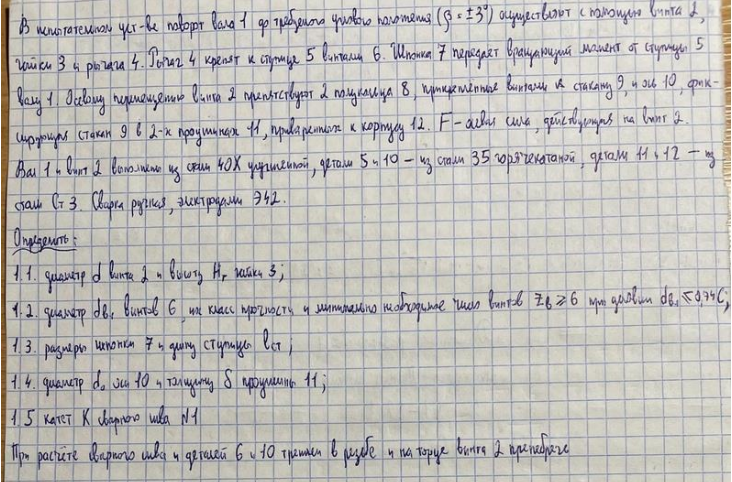 В испытательном уст-ве поворот вала 1 до требуемого углового положения (β = ±3°) осуществляют с помощью винта 2,
гайки 3 и рычага 4. Рычаг 4 крепят к ступице 5 винтами 6. Шпонка 7 передает вращающий момент от ступицы 5
валу 1. Осевому перемещению винта 2 препятствуют 2 полукольца 8, прикрепленные винтами к стакану 9, и оси 10, фик-
сирующая стакан 9 в 2-х проушинах 11, приваренных к корпусу 12. F – осевая сила, действующая на винт 2.
Вал 1 и винт 2 выполнены из стали 40Х улучшенной, детали 5 и 10 – из стали 35 горячекатаной, детали 11 и 12 – из
стали Ст 3. Сварка ручная, электродами Э42.
Определить:
1.1. диаметр d винта 2 и высоту Hг гайки 3;
1.2. диаметр dв₁ винтов 6, их класс прочности и минимально необходимое число винтов Zв ≥ 6 при условии dв₁ ≤ 0,74C;
1.3. размеры шпонки 7 и длину ступицы lст;
1.4. диаметр d₀ оси 10 и толщину δ проушины 11;
1.5 катет K сварного шва N1
При расчёте сварного шва и деталей 6 и 10 трением в резьбе и на торце винта 2 пренебречь